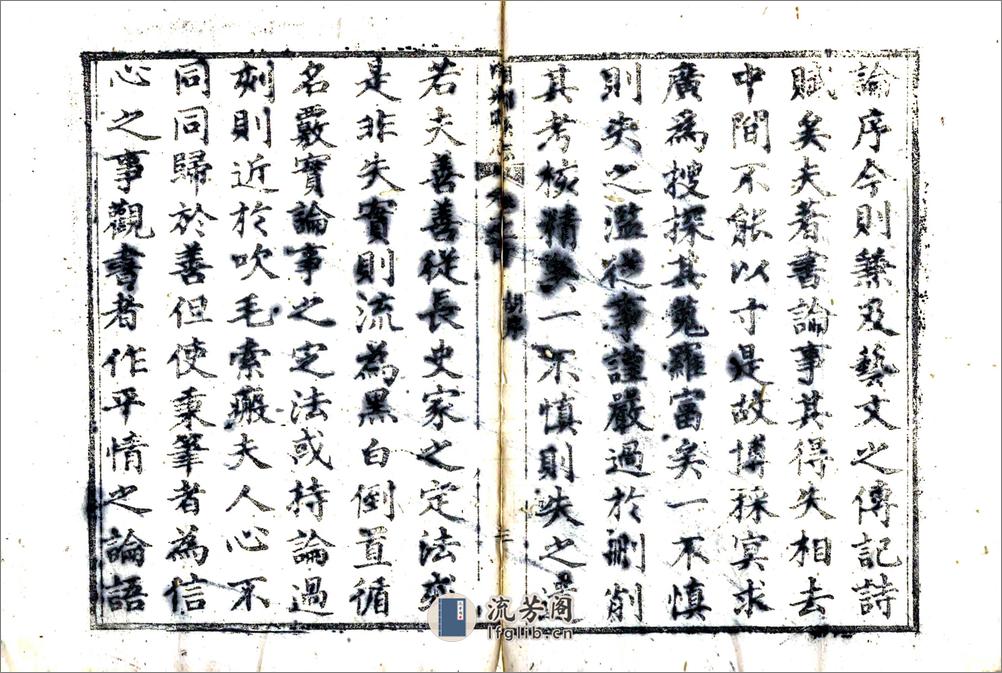 論序今則兼及藝文之傳記詩
賦矣夫著書論事其得失相去
中間不能以寸是故博稽冥求
廣為搜探其蒐羅富矣一不慎
則失之濫從事謹嚴過於刪削
其考核精矣一不慎則失之
胡序
三
若夫善善從長史家之定法或
是非失實則流為黑白倒置循
名覈實論事之定法或持論過
刻則近於吹毛索瘢夫人心不
同同歸於善但使秉筆者為信
心之事觀書者作平情之論語
流芳阁
lfglib.cn